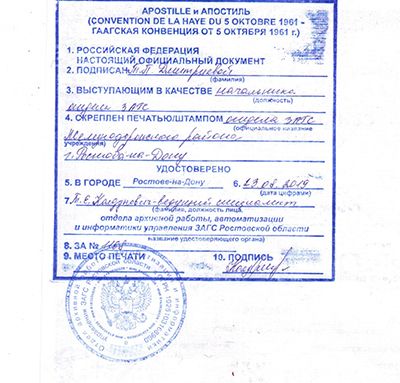 APOSTILLE и АПОСТИЛЬ
(CONVENTION DE LA HAYE DU 5 OKTOBRE 1961 -
ГААГСКАЯ КОНВЕНЦИЯ ОТ 5 ОКТЯБРЯ 1961 г.)
1. РОССИЙСКАЯ ФЕДЕРАЦИЯ
НАСТОЯЩИЙ ОФИЦИАЛЬНЫЙ ДОКУМЕНТ
2. ПОДПИСАН Т.П. Дмитриевой
(фамилия)
3. ВЫСТУПАЮЩИМ В КАЧЕСТВЕ начальника
(должность)
отдела ЗАГС
4. СКРЕПЛЕН ПЕЧАТЬЮ/ШТАМПОМ отдела ЗАГС
(официальное название
Железнодорожного района
учреждения)
г. Ростова-на-Дону
УДОСТОВЕРЕНО
5. В ГОРОДЕ Ростове-на-Дону 6. 2019
(дата цифрами)
7. ведущий специалист
(фамилия, должность лица,
отдела архивной работы, автоматизации
и информатики управления ЗАГС Ростовской области
название удостоверяющего органа)
8. ЗА №
9. МЕСТО ПЕЧАТИ 10. ПОДПИСЬ